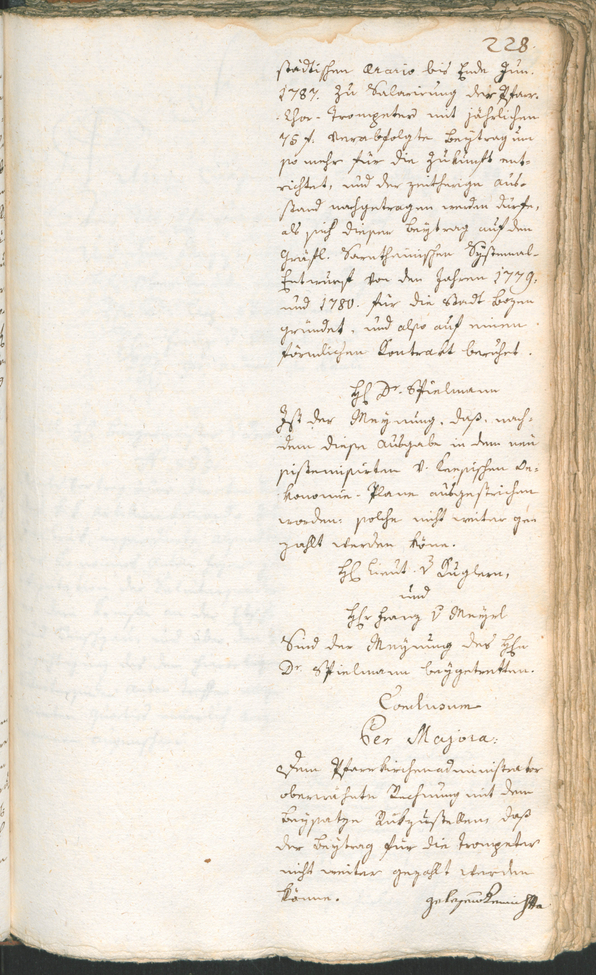 228.
städtischen Aerario bis Ende Jun.
1787. zu Salarirung der Pfar-
Chor-Trompeter mit jährlichen
75 f. verabfolgte Beytrag um
so mehr für die Zukunft ent-
richtet, und der zeitherige Aus-
stand nachgetragen werden dürfe,
als sich dieser Beytrag auf den
Gräfl. Sarntheinischen Systemal-
Entwurf von den Jahren 1779.
und 1780. für die Stadt Bozen
gründet, und also auf einem
förmlichen Kontrakt beruhet.
H. Dr. Spielmann
Ist der Meynung, daß, nach-
dem diese Ausgabe in dem neu
sistemisirten v. Kespischen Oe-
konomie-Plane ausgestrichen
worden: solche nicht weiter ge-
zahlt werden köne.
H. Lieut. v Kuglern,
und
Hr Franz v Meyrl
Sind der Meynung des Hn
Dr. Spielmann beygetretten.
Conclusum
Per Majora:
Dem Pfarrkirchenadministrator
oberwähnte Rechnung mit dem
Beysatze Rükzustellen, daß
der Beytrag für die Trompeter
nicht weiter gezahlt werden
könne.